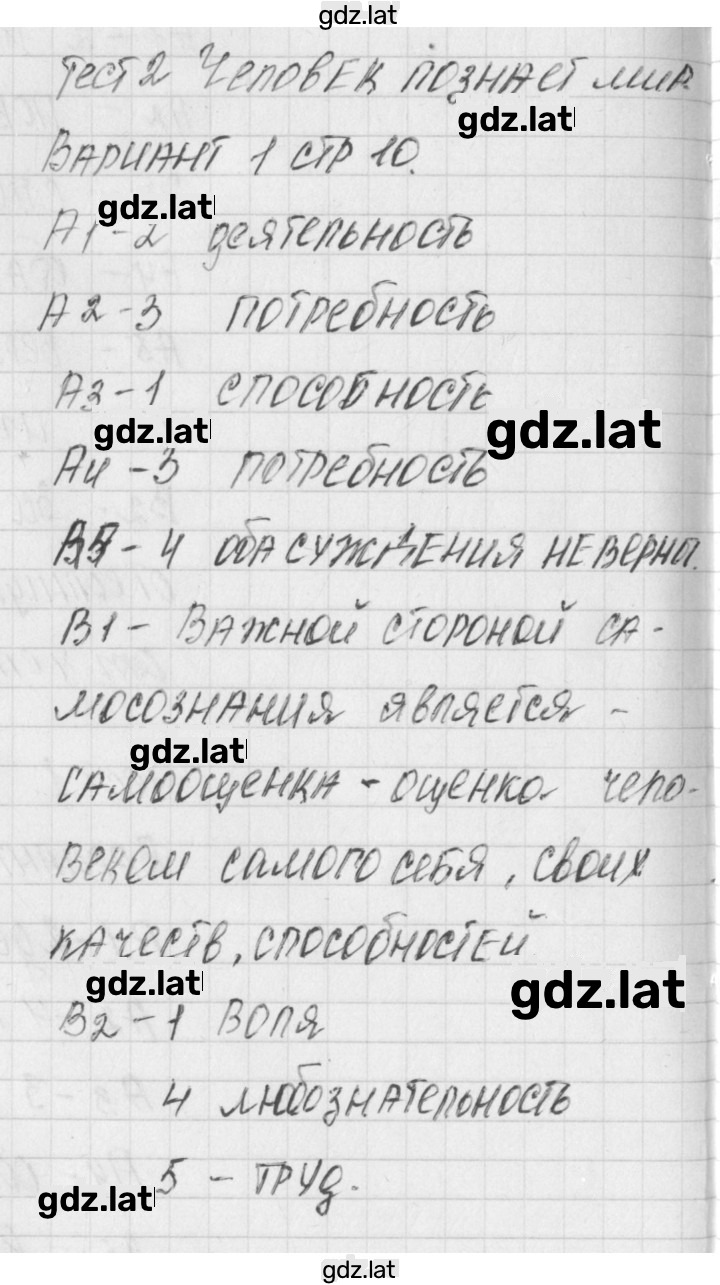 gdz.lat
Тест 2 Человек познает мир
gdz.lat
Вариант 1 стр 10.
gdz.lat
А1-2 деятельность
А2-3 потребность
А3-1 способность
gdz.lat
gdz.lat
А4-3 потребность
А5-4 оба суждения неверны.
В1- Важной стороной са-
мосознания является -
gdz.lat
самооценка - оценка чело-
веком самого себя, своих
качеств, способностей
gdz.lat
gdz.lat
В2-1 Воля
4 любознательность
5 - труд.
gdz.lat
gdz.lat